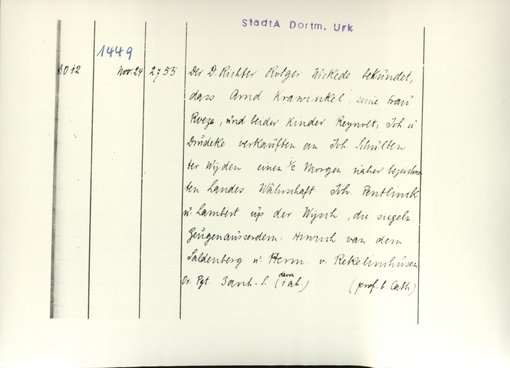 StadtA Dortm. Urk
1449
3012 Nov. 24 2755 Der D. Richter Rotger Wickede bekundet,
dass Arnd Krawinkel, seine Frau
und beider Kinder Reynolt, Joh. u.
Drudeke verkauften an Joh. Schulten
ter Wyden einen 1/2 Morgen näher bezeichne-
ten Landes. Währschaft Joh.
u. Lambert up der Wysch, die siegeln
Zeugen ausserdem: Hinrich van dem
Saldenberg u. Herm. v. Rekelinhusen
Or. Pgt. 3 anh. S. (dem 1 ab.) (prof. b. Cath)